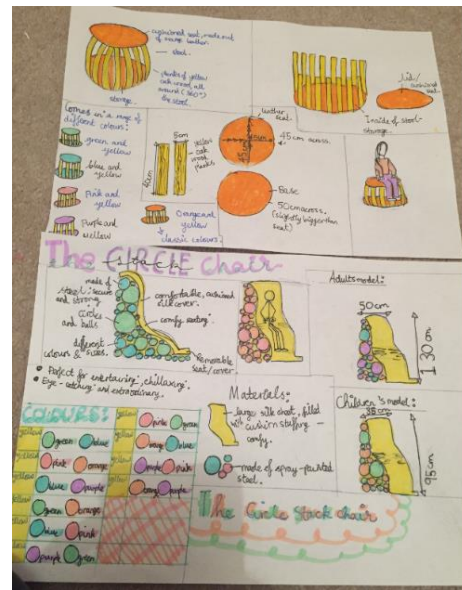 cushioned seat, made out
of orange leather
stool.
planks of yellow
oak wood, all
around (360°)
the stool.
storage.
Lid/
cushioned
seat.
Inside of stool -
storage.
Comes in a range of
different colours:
green and
yellow
blue and
yellow
Pink and
yellow
Purple and
yellow
8cm
40cm
yellow
oak wood
planks
Orange and
yellow
classic colours.
leather
seat.
45cm
45cm
across.
Base
50cm across.
(slightly bigger than
seat)
The CIRCLE Chair
stack
made of
steel: secure
and strong
circles
and balls
different
colours & sizes.
comfortable, cushioned
silk cover.
comfy seating.
Removable
seat/cover.
Perfect for entertaining, chillaxing.
Eye-catching and extraordinary.
Adults model:
50cm
130cm
Children's model:
38cm
95cm
Materials:
large silk sheet, filled
with cushion stuffing -
comfy.
made of spray-painted
steel.
COLOURS:
yellow green blue
yellow pink orange
yellow blue purple
yellow green orange
yellow blue pink
yellow purple green
yellow pink green
yellow orange blue
yellow purple pink
yellow orange purple
The Circle Stack chair